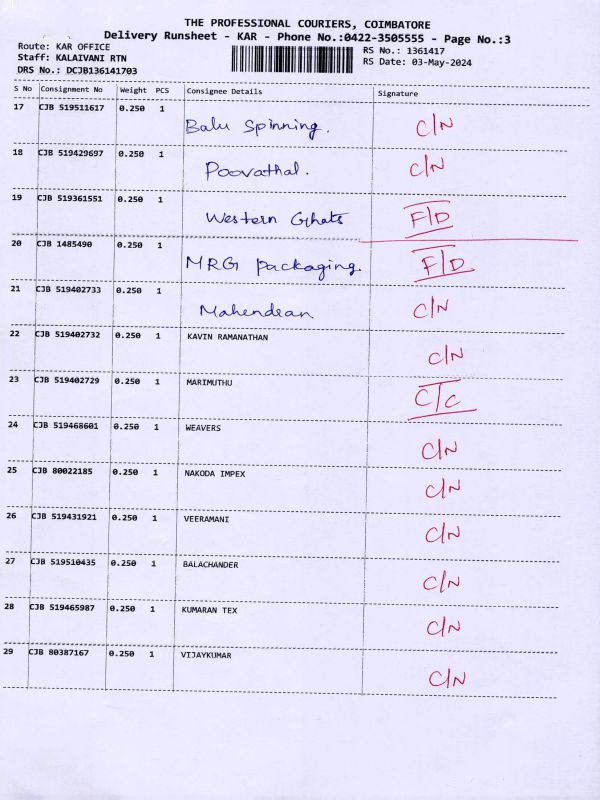 THE PROFESSIONAL COURIERS, COIMBATORE
Delivery Runsheet - KAR - Phone No.:0422-3505555 - Page No.:3
Route: KAR OFFICE RS No.: 1361417
Staff: KALAIVANI RTN RS Date: 03-May-2024
DRS No.: DCJB136141703
S No Consignment No Weight PCS Consignee Details Signature
17 CJB 519511617 0.250 1 Balu Spinning. C/N
18 CJB 519429697 0.250 1 Poovathal. C/N
19 CJB 519361551 0.250 1 Western Ghats F/D
20 CJB 1485490 0.250 1 MRG Packaging. F/D
21 CJB 519402733 0.250 1 Mahendean C/N
22 CJB 519402732 0.250 1 KAVIN RAMANATHAN C/N
23 CJB 519402729 0.250 1 MARIMUTHU C/C
24 CJB 519468601 0.250 1 WEAVERS C/N
25 CJB 80022185 0.250 1 NAKODA IMPEX C/N
26 CJB 519431921 0.250 1 VEERAMANI C/N
27 CJB 519510435 0.250 1 BALACHANDER C/N
28 CJB 519465987 0.250 1 KUMARAN TEX C/N
29 CJB 80387167 0.250 1 VIJAYKUMAR C/N